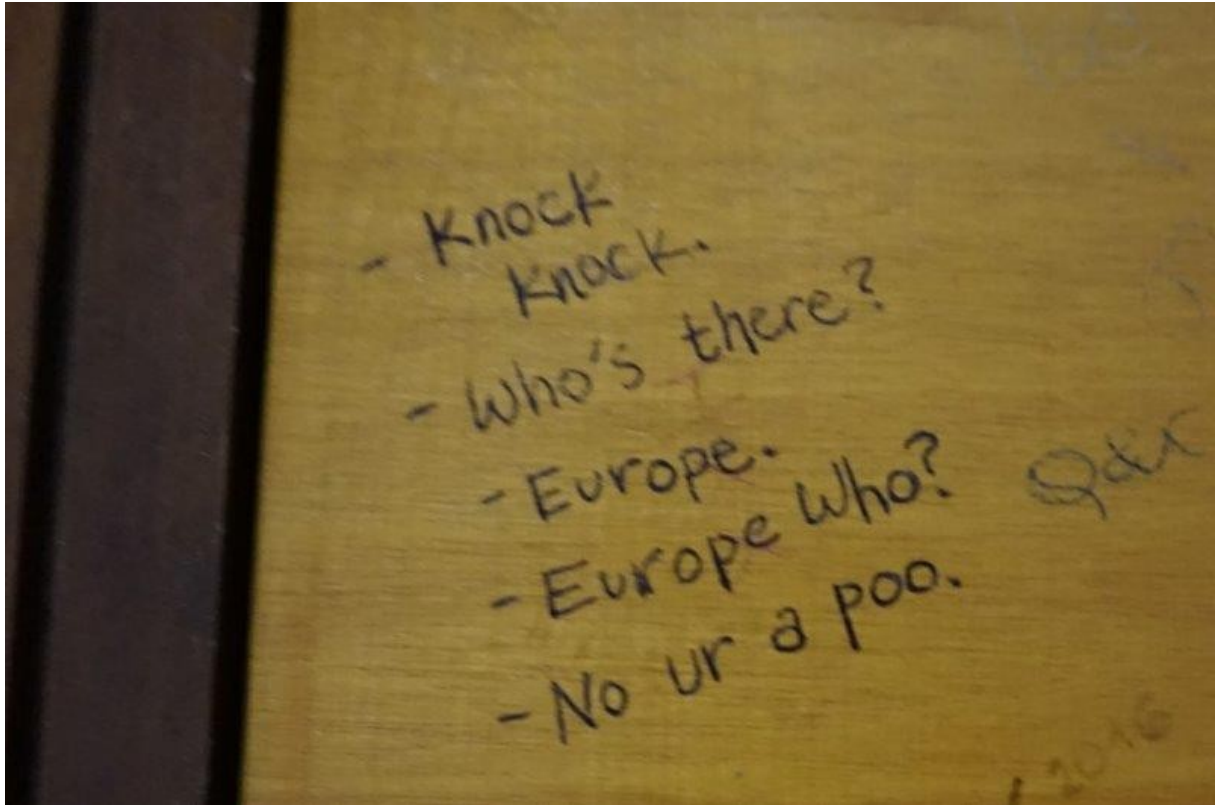 - Knock
Knock.
- Who's there?
- Europe.
- Europe Who?
- No ur a poo.
2016